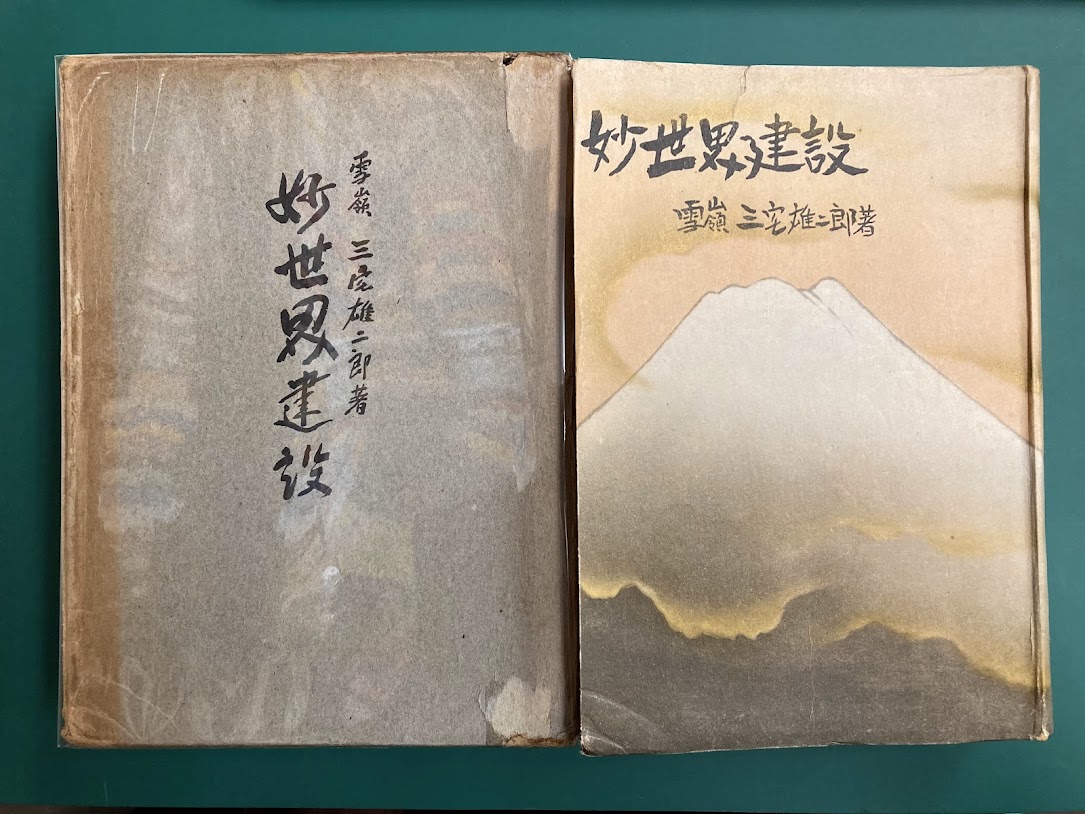 雪嶺 三宅雄二郎著
妙世界建設
妙世界建設
雪嶺 三宅雄二郎著